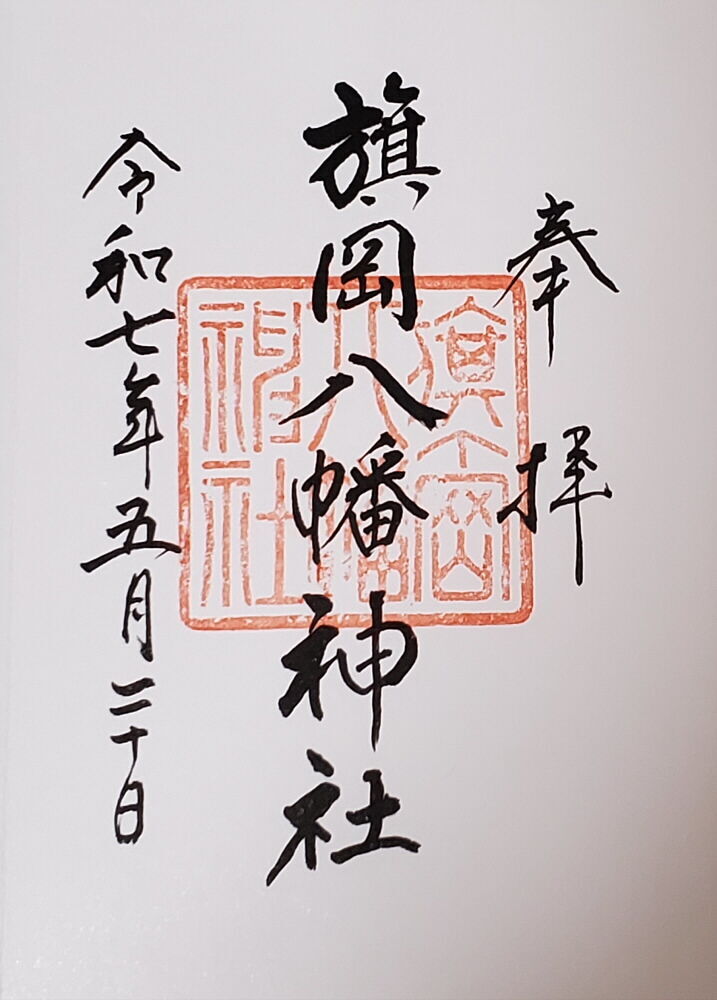 奉拝
旗岡八幡神社
令和七年五月二十日
旗岡
八幡
神社